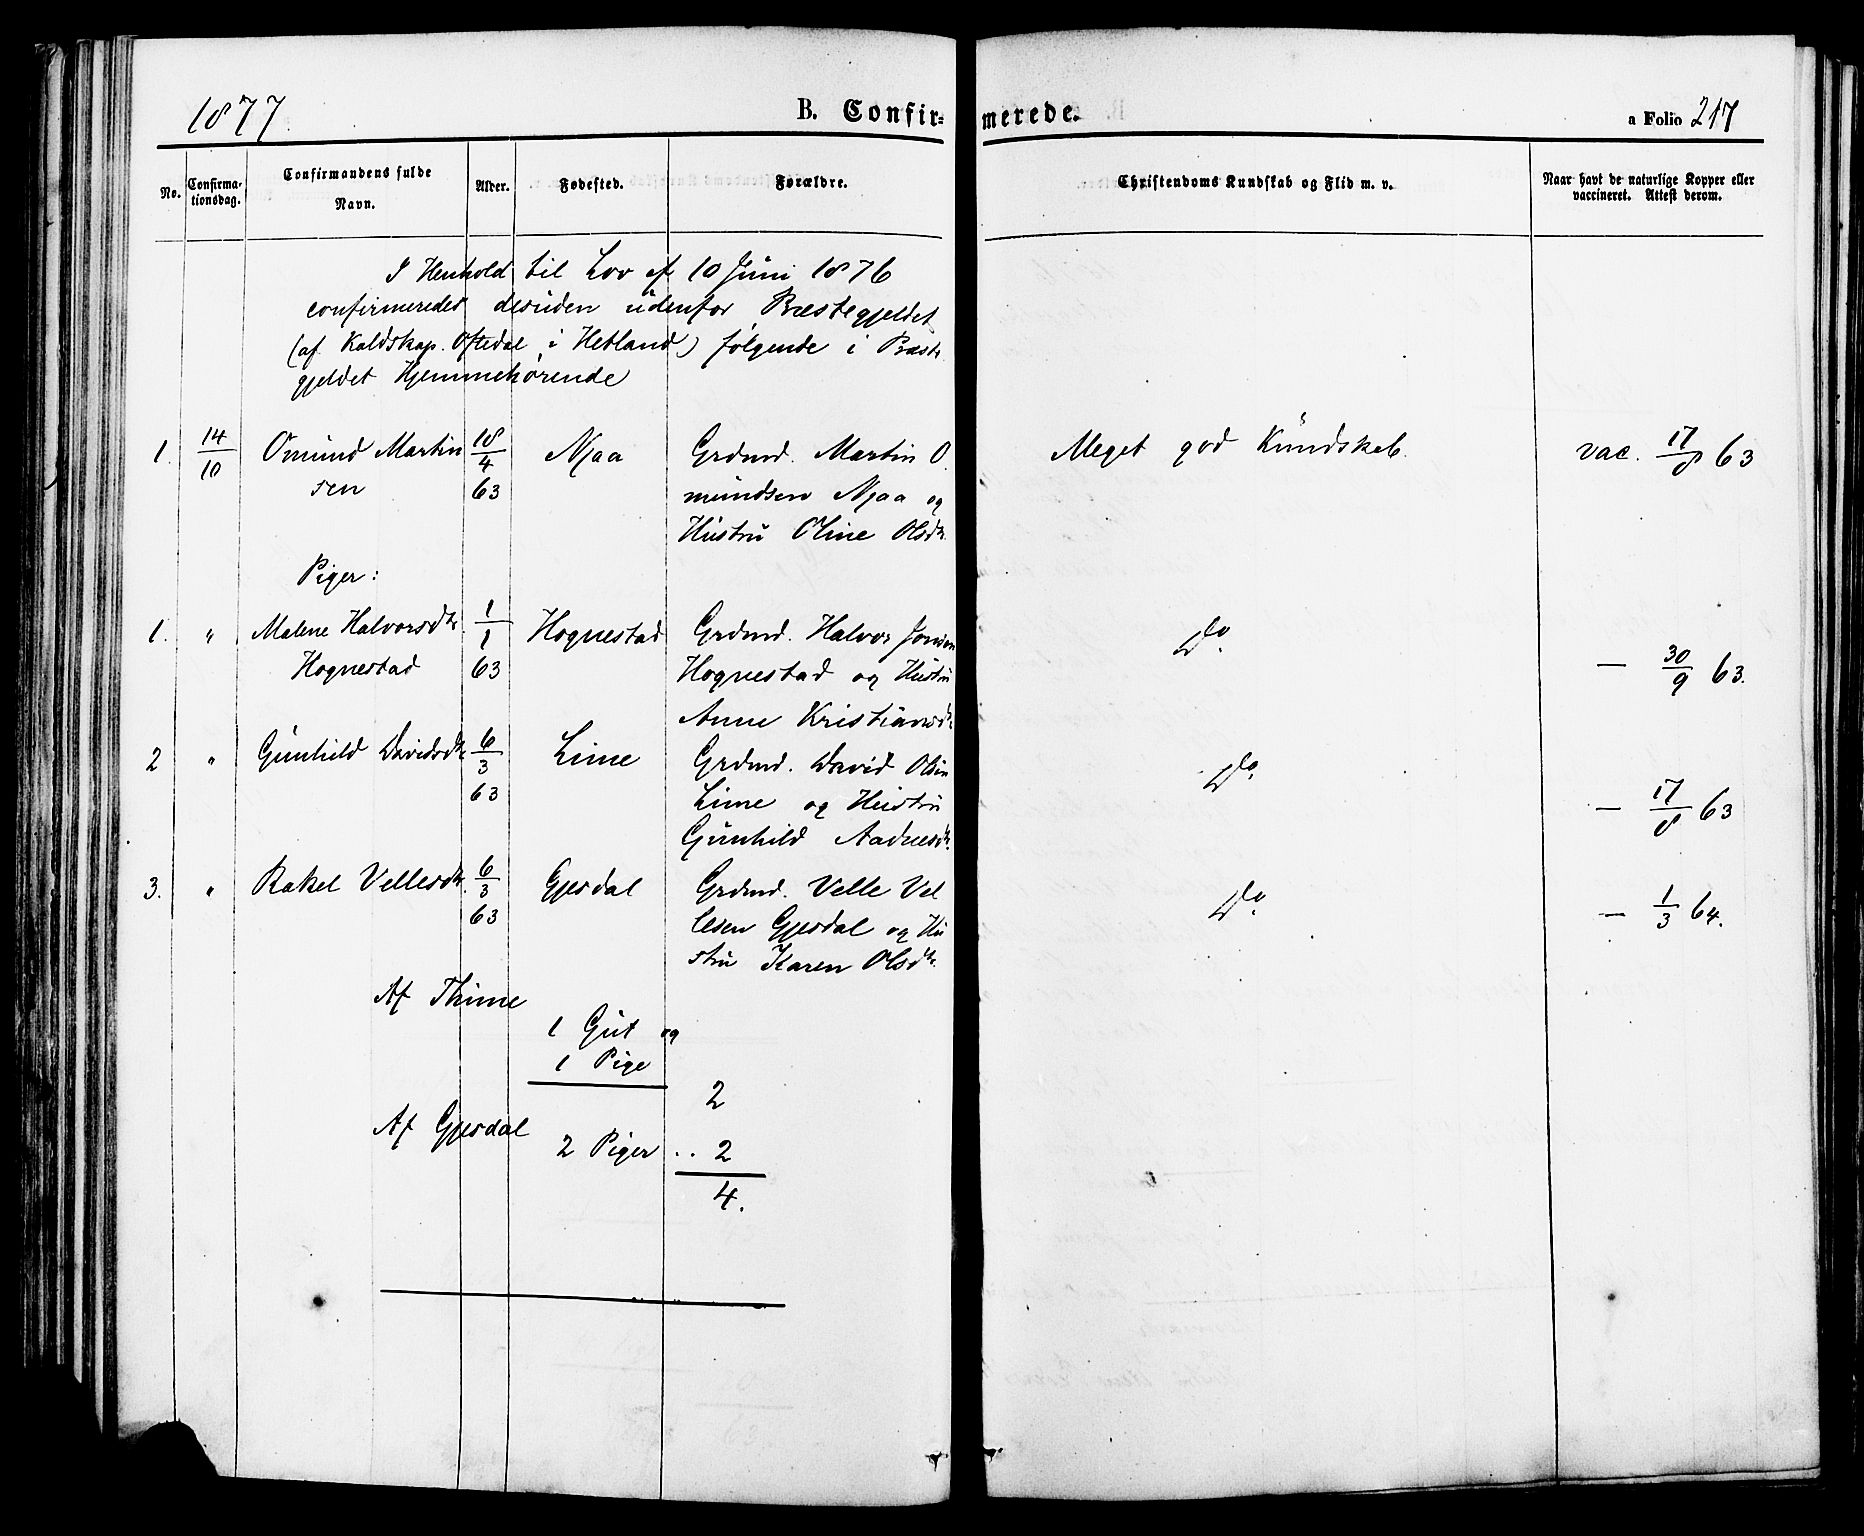 1877.
B. Confir=
merede.
a Folio 217
No.
Confirma-
tionsdag.
Confirmandens fulde
Navn.
Alder.
Fødested.
Forældre.
Christendoms Kundskab og Flid m. v.
Naar havt de naturlige Kopper eller
vaccineret. Attest derom.
I Henhold til Lov af 10 Juni 1876
confirmeredes desuden udenfor Præstegjeldet
(af Kaldskap. Oftedal i Hetland) følgende i Præste
gjeldet Hjemmehørende
1. 14/10 Omund Martin 18/4 Njaa Grdmd. Martin O Meget god Kundskab. vac. 17/8 63
sen 63 mundsen Njaa og
Hustru Oline Olsdtr.
Piger:
1. " Malene Halvorsdtr. 1/1 Hognestad Grdmd. Halvor Jonsen Do.
Hognestad 63 Hognestad og Hustru — 30/9 63.
Anne Kristiansdtr.
2 " Gunhild Davidsdtr. 6/3 Lime Grdmd. David Olsen Do.
63 Lime og Hustru — 17/8 63
Gunhild Aadnesdtr.
3. " Rakel Vellesdtr. 6/3 Gjesdal Grdmd. Velle Vel Do. — 1/3 64.
63 lesen Gjesdal og Hu
stru Karen Olsdtr.
Af Thime
1 Gut og
1 Pige
2
Af Gjesdal
2 Piger .. 2
4.